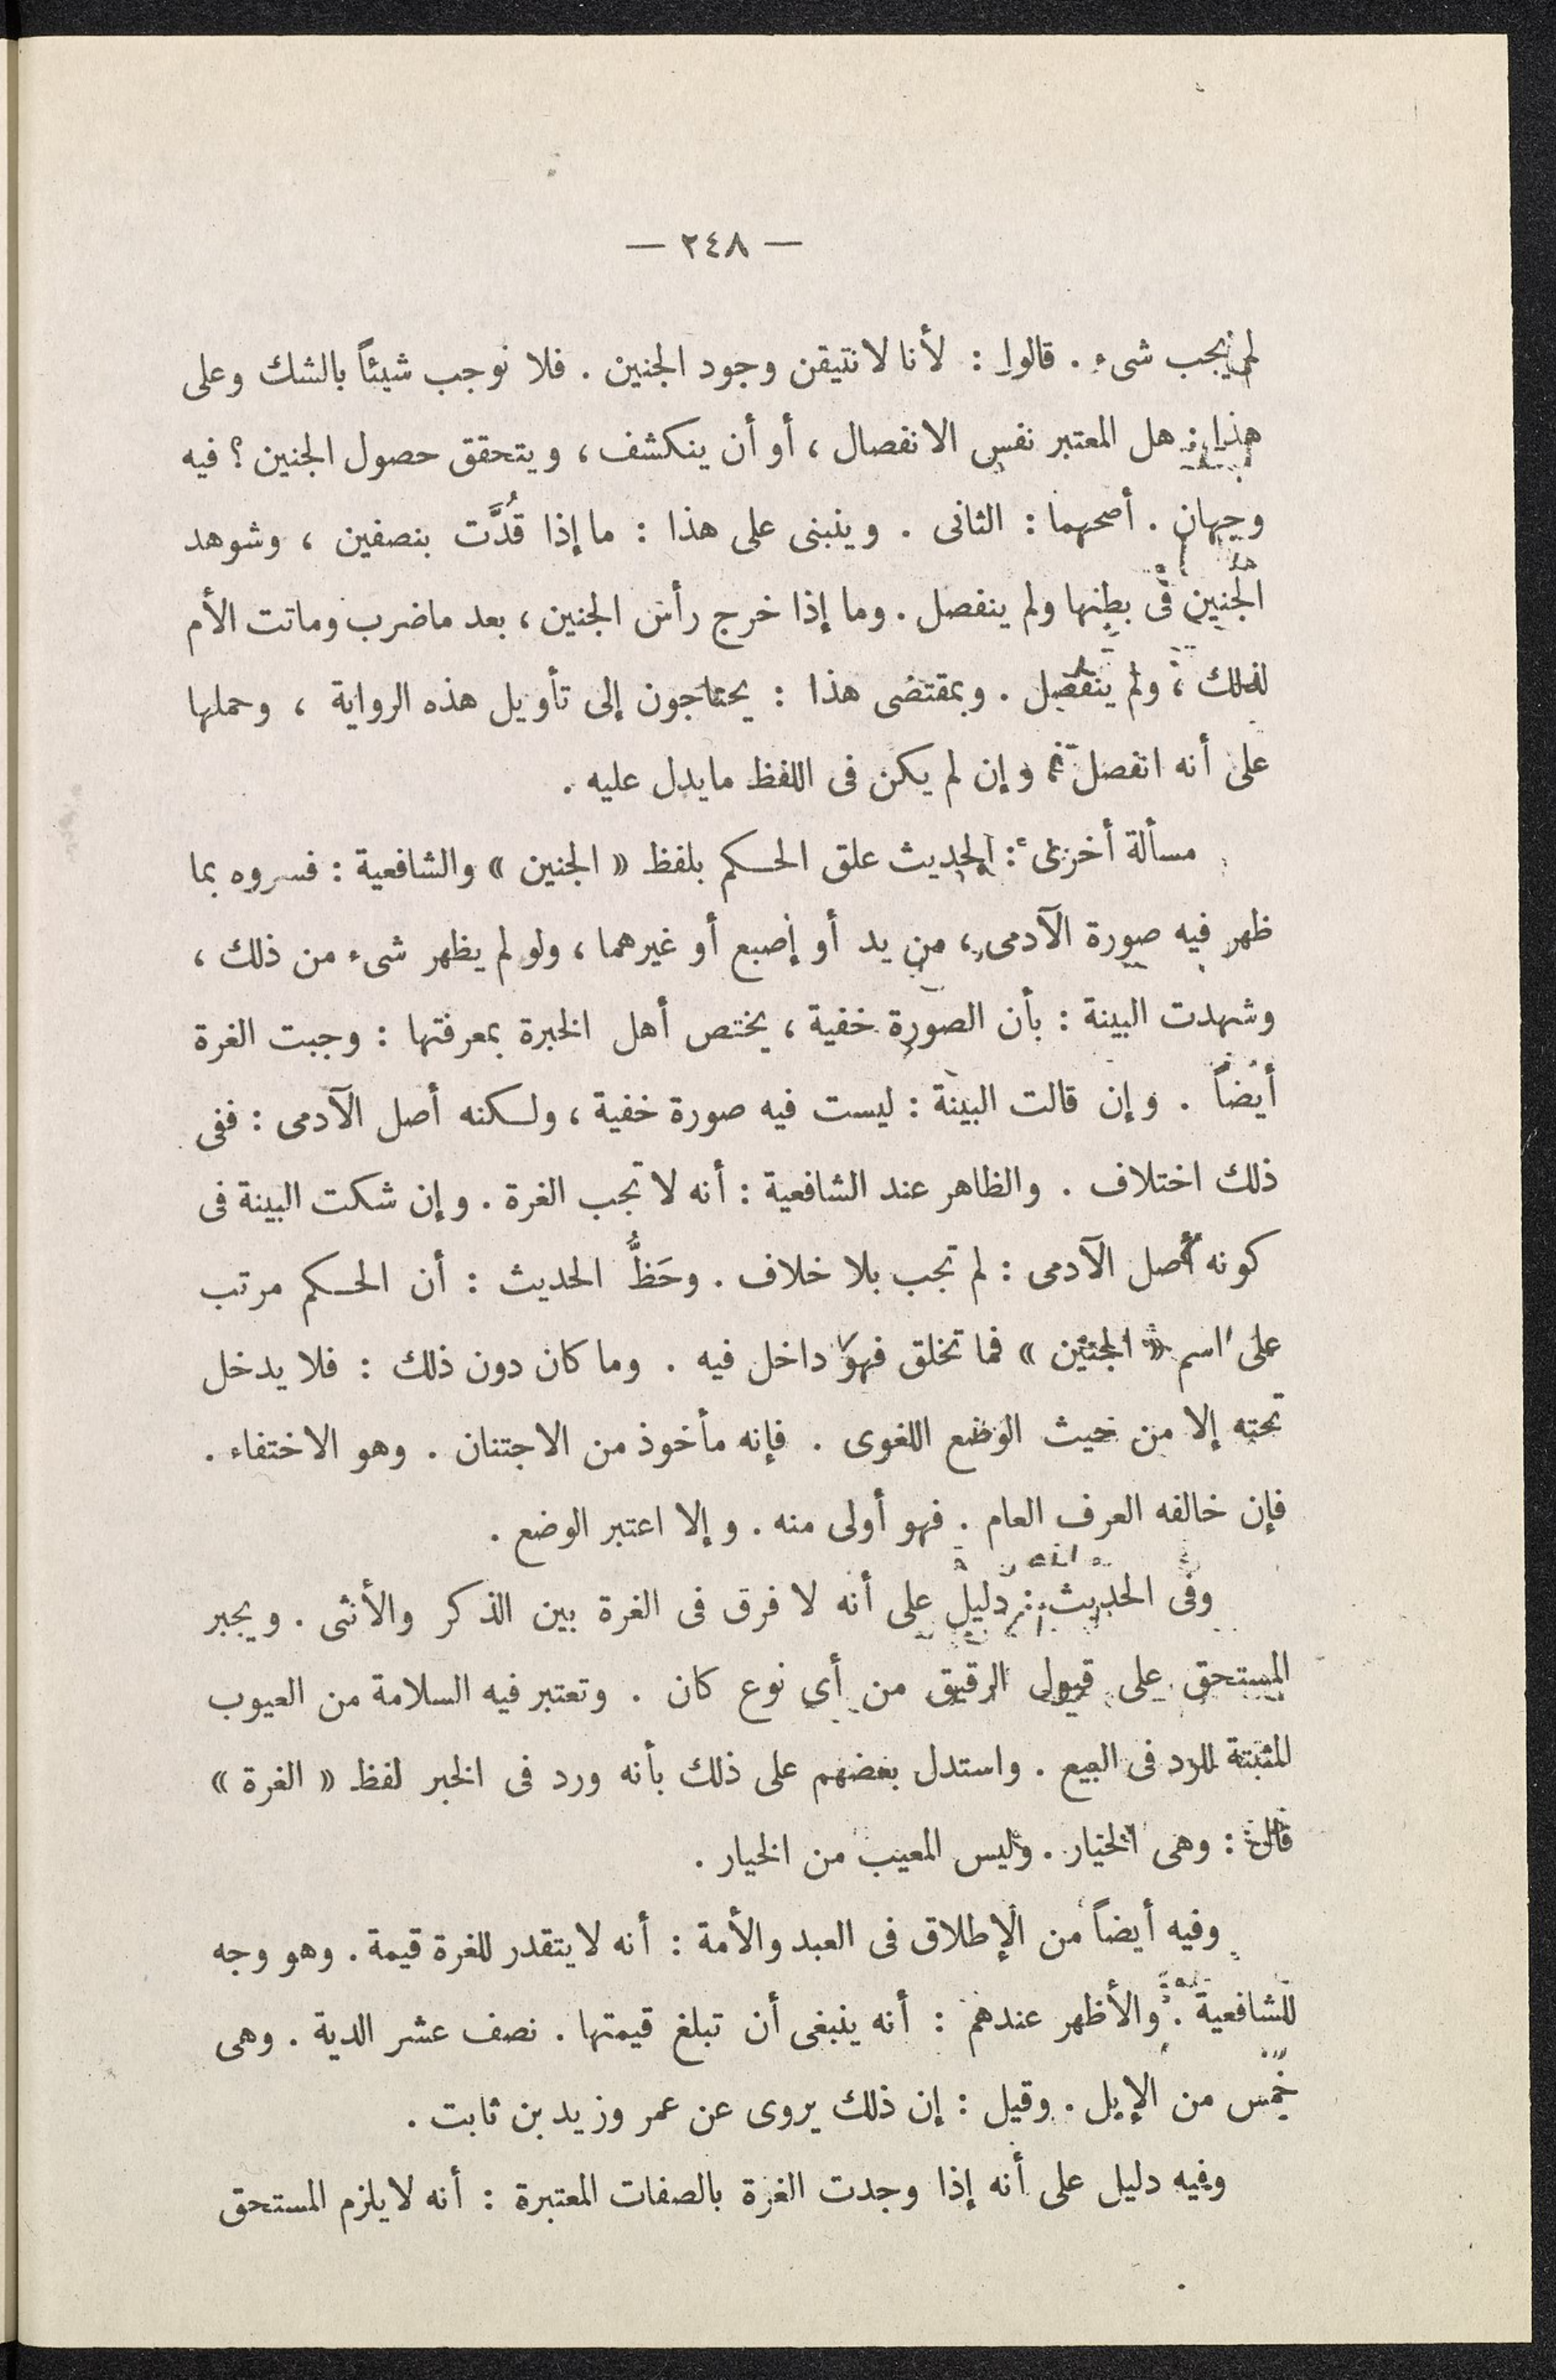 — ٢٤٨ —
لم يجب شىء . قالوا : لأنا لا نتيقن وجود الجنين . فلا نوجب شيئاً بالشك وعلى
هذا : هل المعتبر نفس الانفصال ، أو أن ينكشف ، ويتحقق حصول الجنين ؟ فيه
وجهان . أصحهما : الثانى . وينبنى على هذا : ما إذا قُدَّت بنصفين ، وشوهد
الجنين فى بطنها ولم ينفصل . وما إذا خرج رأس الجنين ، بعد ماضرب وماتت الأم
لذلك ، ولم ينفصل . وبمقتضى هذا : يحتاجون إلى تأويل هذه الرواية ، وحملها
على أنه انفصل ، وإن لم يكن فى اللفظ مايدل عليه .
مسألة أخرى : الحديث علق الحكم بلفظ « الجنين » والشافعية : فسروه بما
ظهر فيه صورة الآدمى ، من يد أو إصبع أو غيرهما ، ولو لم يظهر شىء من ذلك ،
وشهدت البينة : بأن الصورة خفية ، يختص أهل الخبرة بمعرفتها : وجبت الغرة
أيضاً . وإن قالت البينة : ليست فيه صورة خفية ، ولكنه أصل الآدمى : ففى
ذلك اختلاف . والظاهر عند الشافعية : أنه لا تجب الغرة . وإن شكت البينة فى
كونه أصل الآدمى : لم تجب بلا خلاف . وحَظُّ الحديث : أن الحكم مرتب
على اسم « الجنين » فما تخلق فهو داخل فيه . وما كان دون ذلك : فلا يدخل
تحته إلا من حيث الوضع اللغوى . فإنه مأخوذ من الاجتنان . وهو الاختفاء .
فإن خالفه العرف العام . فهو أولى منه . وإلا اعتبر الوضع .
وفى الحديث : دليل على أنه لا فرق فى الغرة بين الذكر والأنثى . ويجبر
المستحق على قبول الرقيق من أى نوع كان . وتعتبر فيه السلامة من العيوب
المثبتة للرد فى البيع . واستدل بعضهم على ذلك بأنه ورد فى الخبر لفظ « الغرة »
قال : وهى الخيار . وليس المعيب من الخيار .
وفيه أيضاً من الإطلاق فى العبد والأمة : أنه لا يتقدر للغرة قيمة . وهو وجه
للشافعية . والأظهر عندهم : أنه ينبغى أن تبلغ قيمتها . نصف عشر الدية . وهى
خمس من الإبل . وقيل : إن ذلك يروى عن عمر وزيد بن ثابت .
وفيه دليل على أنه إذا وجدت الغرة بالصفات المعتبرة : أنه لا يلزم المستحق